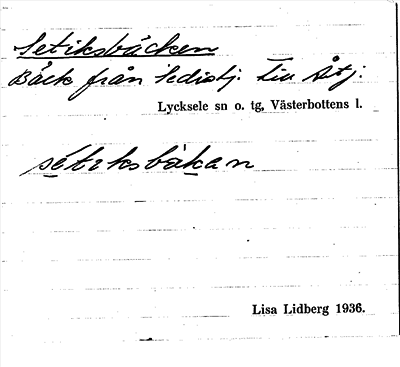 Setiksbäcken
Bäck från Sedistj. till Åtj.
Lycksele sn o. tg, Västerbottens l.
sétiksbäkan
Lisa Lidberg 1936.